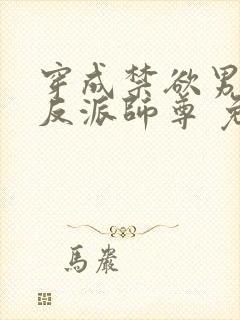 穿成禁欲男
反派師尊
馬嚴